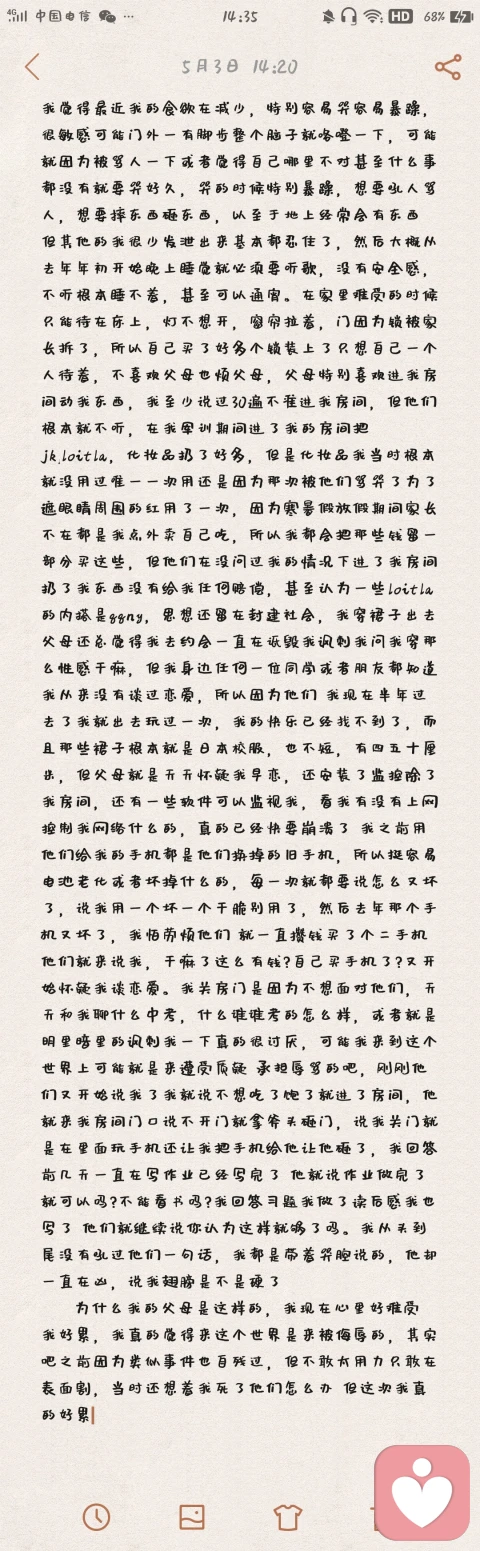 中国电信 ... 14:35 HD 68%
5月3日 14:20
我觉得最近我的食欲在减少，特别容易哭容易暴躁，
很敏感可能门外一有脚步整个脑子就咯噔一下，可能
就因为被骂人一下或者觉得自己哪里不对甚至什么事
都没有就要哭好久，哭的时候特别暴躁，想要吼人骂
人，想要摔东西砸东西，以至于地上经常会有东西
但其他的我很少发泄出来基本都忍住了，然后大概从
去年年初开始晚上睡觉就必须要听歌，没有安全感，
不听根本睡不着，甚至可以通宵。在家里难受的时候
只能待在床上，灯不想开，窗帘拉着，门因为锁被家
长拆了，所以自己买了好多个锁装上了只想自己一个
人待着，不喜欢父母也烦父母，父母特别喜欢进我房
间动我东西，我至少说过30遍不准进我房间，但他们
根本就不听，在我军训期间进了我的房间把
jk,loitla，化妆品扔了好多，但是化妆品我当时根本
就没用过唯一一次用还是因为那次被他们骂哭了为了
遮眼睛周围的红用了一次，因为寒暑假放假期间家长
不在都是我点外卖自己吃，所以我都会把那些钱留一
部分买这些，但他们在没问过我的情况下进了我房间
扔了我东西没有给我任何赔偿，甚至认为一些loitla
的内搭是qqny，思想还留在封建社会，我穿裙子出去
父母还总觉得我去约会一直在诋毁我讽刺我问我穿那
么性感干嘛，但我身边任何一位同学或者朋友都知道
我从来没有谈过恋爱，所以因为他们 我现在半年过
去了我就出去玩过一次，我的快乐已经找不到了，而
且那些裙子根本就是日本校服，也不短，有四五十厘
米，但父母就是天天怀疑我早恋，还安装了监控除了
我房间，还有一些软件可以监视我，看我有没有上网
控制我网络什么的，真的已经快要崩溃了 我之前用
他们给我的手机都是他们换掉的旧手机，所以挺容易
电池老化或者坏掉什么的，每一次就都要说怎么又坏
了，说我用一个坏一个干脆别用了，然后去年那个手
机又坏了，我怕劳烦他们 就一直攒钱买了个二手机
他们就来说我，干嘛了这么有钱?自己买手机了?又开
始怀疑我谈恋爱。我关房门是因为不想面对他们，天
天和我聊什么中考，什么谁谁考的怎么样，或者就是
明里暗里的讽刺我一下真的很讨厌，可能我来到这个
世界上可能就是来遭受质疑 承担辱骂的吧，刚刚他
们又开始说我了我就说不想吃了饱了就进了房间，他
就来我房间门口说不开门就拿斧头砸门，说我关门就
是在里面玩手机还让我把手机给他让他砸了，我回答
前几天一直在写作业已经写完了 他就说作业做完了
就可以吗?不能看书吗?我回答习题我做了读后感我也
写了 他们就继续说你认为这样就够了吗。我从头到
尾没有吼过他们一句话，我都是带着哭腔说的，他却
一直在凶，说我翅膀是不是硬了
为什么我的父母是这样的，我现在心里好难受
我好累，我真的觉得来这个世界是来被侮辱的，其实
吧之前因为类似事件也自残过，但不敢太用力只敢在
表面割，当时还想着我死了他们怎么办 但这次我真
的好累